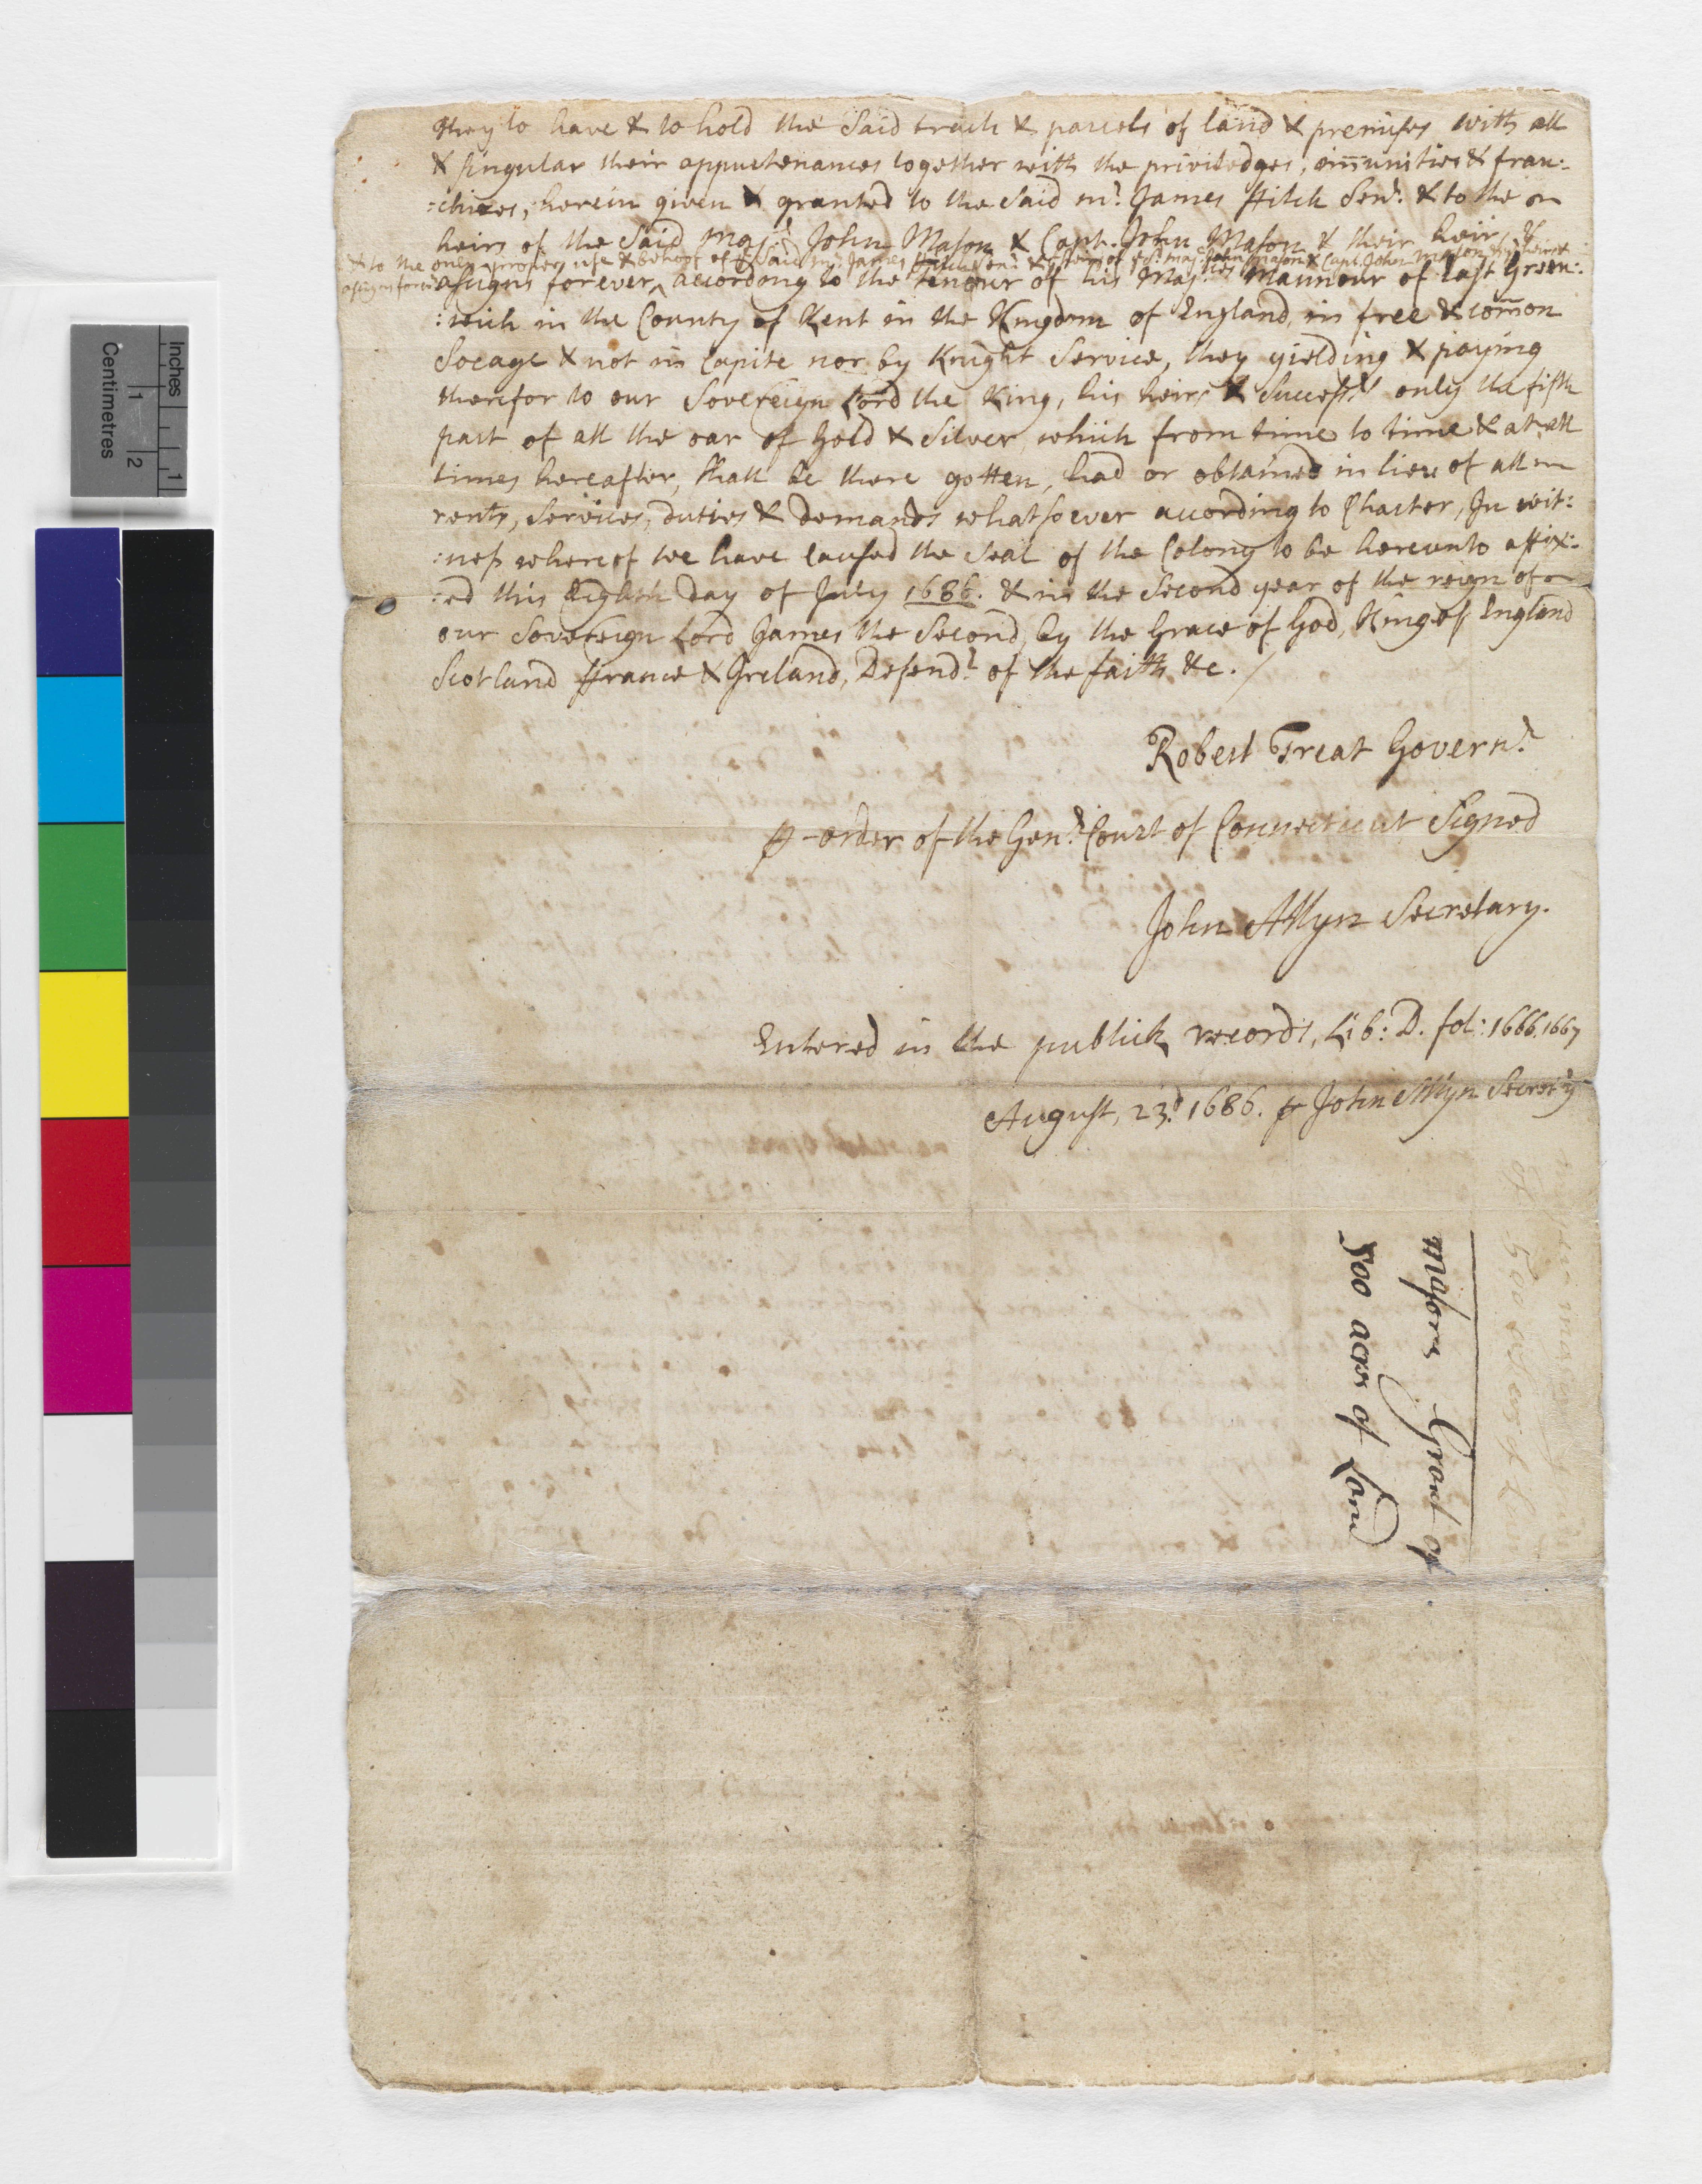 they to have & to hold the said tracts & parcels of land & premises with all
& singular their appurtenances together with the priviledges, imunities & fran:
:chizes, herein given & granted to the said mr. James Fitch Senr. & to the
heirs of the said Majr. John Mason & Capt. John Mason & their heirs &
& to the only proper use & behoof of ye said mr. James Fitch Senr. & ye heirs of ye sd. Majr. John Mason & Capt. John Mason their heirs &
assigns forever
assigns forever, ^ according to the tenour of his Majties Mannour of East Green:
:wich in the County of Kent in the Kingdom of England, in free & comon
Socage & not in Capite nor by Knight Service, they yielding & paying
therefor to our Sovereign Lord the King, his heirs & Successrs. only the fifth
part of all the oar of Gold & Silver which from time to time & at all
times hereafter, shall be there gotten, had or obtained in lieu of all
rents, services, duties & demands whatsoever according to Charter, In wit:
:ness whereof we have caused the Seal of the Colony to be hereunto affix:
:ed this Eighth day of July 1686. & in the Second year of the reign of
our Sovereign Lord James the Second, by the Grace of God, King of England
Scotland ffrance & Ireland, Defendr. of the faith &c. /
Robert Treat Governr.
p order of the Genll. Court of Connecticut Signed
John Allyn Secretary.
Entered in the publick records, Lib: D. fol: 166.167
August, 23d. 1686. p John Allyn Secret'y
Masons Grant of
500 acres of Land
of 500 acres of Land